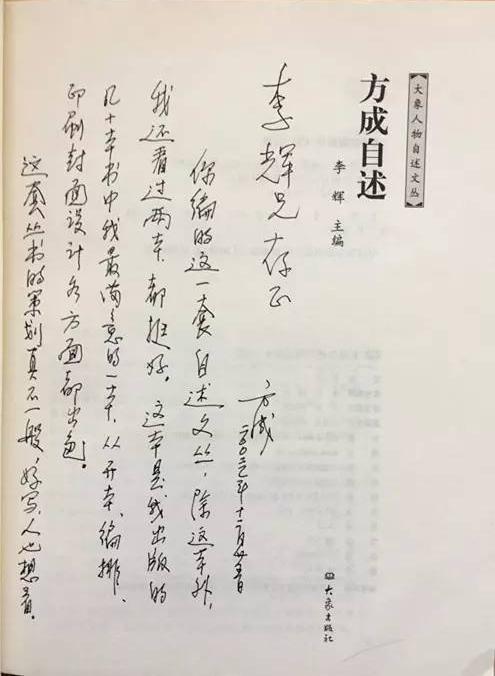 【大象人物自述文丛】
方成自述
李辉 主编
大象出版社
李辉兄存正
方成
二〇〇三年十二月廿五日
你编的这一套自述文丛，除这本外，
我还看过两本，都挺好。这本是我出版的
几十本书中我最满意的一本，从开本、编排、
印刷封面设计各方面都出色。
这套丛书的策划真不一般，好写，人也想看。